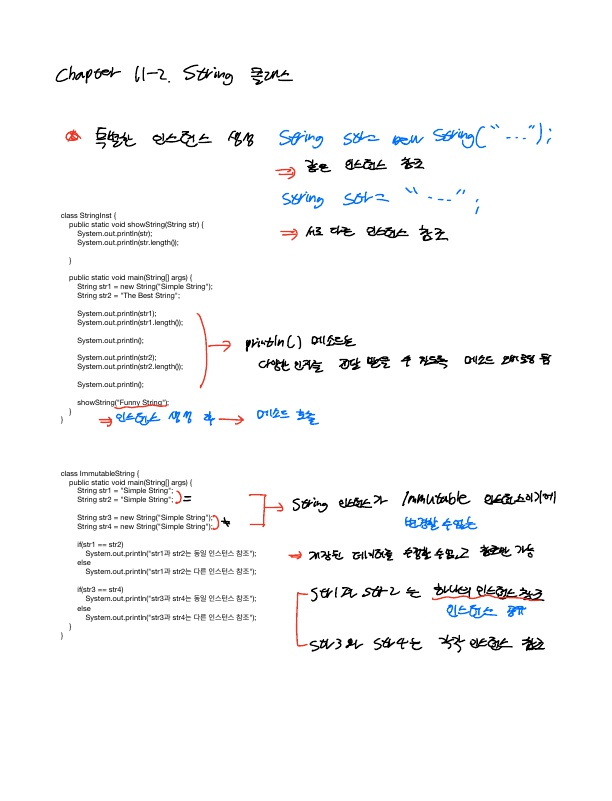 Chapter 11-2. String 클래스
특별한 인스턴스 생성 String str = new String("...");
⇒ 같은 인스턴스 참조
String str = "...";
⇒ 서로 다른 인스턴스 참조
class StringInst {
public static void showString(String str) {
System.out.println(str);
System.out.println(str.length());
}
public static void main(String[] args) {
String str1 = new String("Simple String");
String str2 = "The Best String";
System.out.println(str1);
System.out.println(str1.length());
System.out.println();
System.out.println(str2);
System.out.println(str2.length());
System.out.println();
showString("Funny String");
}
}
→ println() 메소드는
다양한 인자를 전달 받을 수 있도록 메소드 오버로딩 됨
⇒ 인스턴스 생성 후 → 메소드 호출
class ImmutableString {
public static void main(String[] args) {
String str1 = "Simple String";
String str2 = "Simple String"; =
String str3 = new String("Simple String");
String str4 = new String("Simple String"); ≠
if(str1 == str2)
System.out.println("str1과 str2는 동일 인스턴스 참조");
else
System.out.println("str1과 str2는 다른 인스턴스 참조");
if(str3 == str4)
System.out.println("str3과 str4는 동일 인스턴스 참조");
else
System.out.println("str3과 str4는 다른 인스턴스 참조");
}
}
→ String 인스턴스가 Immutable 인스턴스이기에
변경할 수 없는
→ 저장된 데이터를 수정할 수 없고 참조만 가능
str1과 str2는 하나의 인스턴스 참조
인스턴스 공유
str3와 str4는 각각 인스턴스 참조